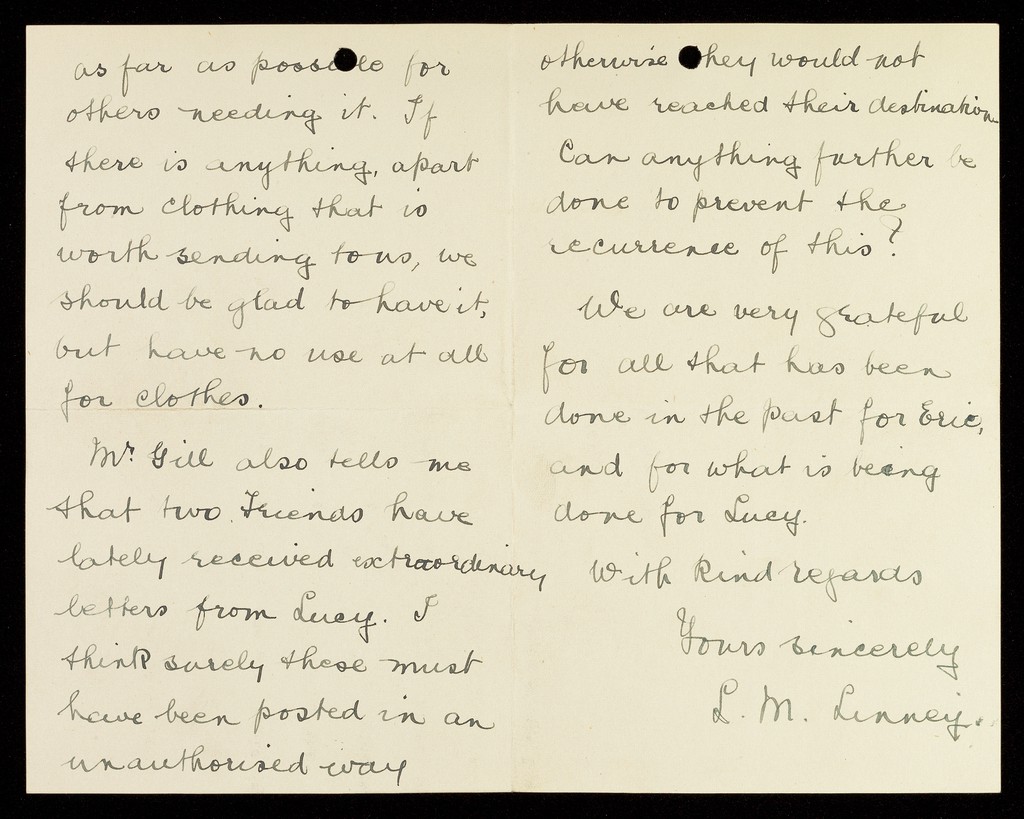 as far as possible for
others needing it. If
there is anything, apart
from clothing that is
worth sending to us, we
should be glad to have it,
but have no use at all
for clothes.
Mr. Gill also tells me
that two Friends have
lately received extraordinary
letters from Lucy. I
think surely these must
have been posted in an
unauthorised way
otherwise they would not
have reached their destination.
Can anything further be
done to prevent the
recurrence of this?
We are very grateful
for all that has been
done in the past for Eric,
and for what is being
done for Lucy.
With kind regards
Yours sincerely
L. M. Linney.